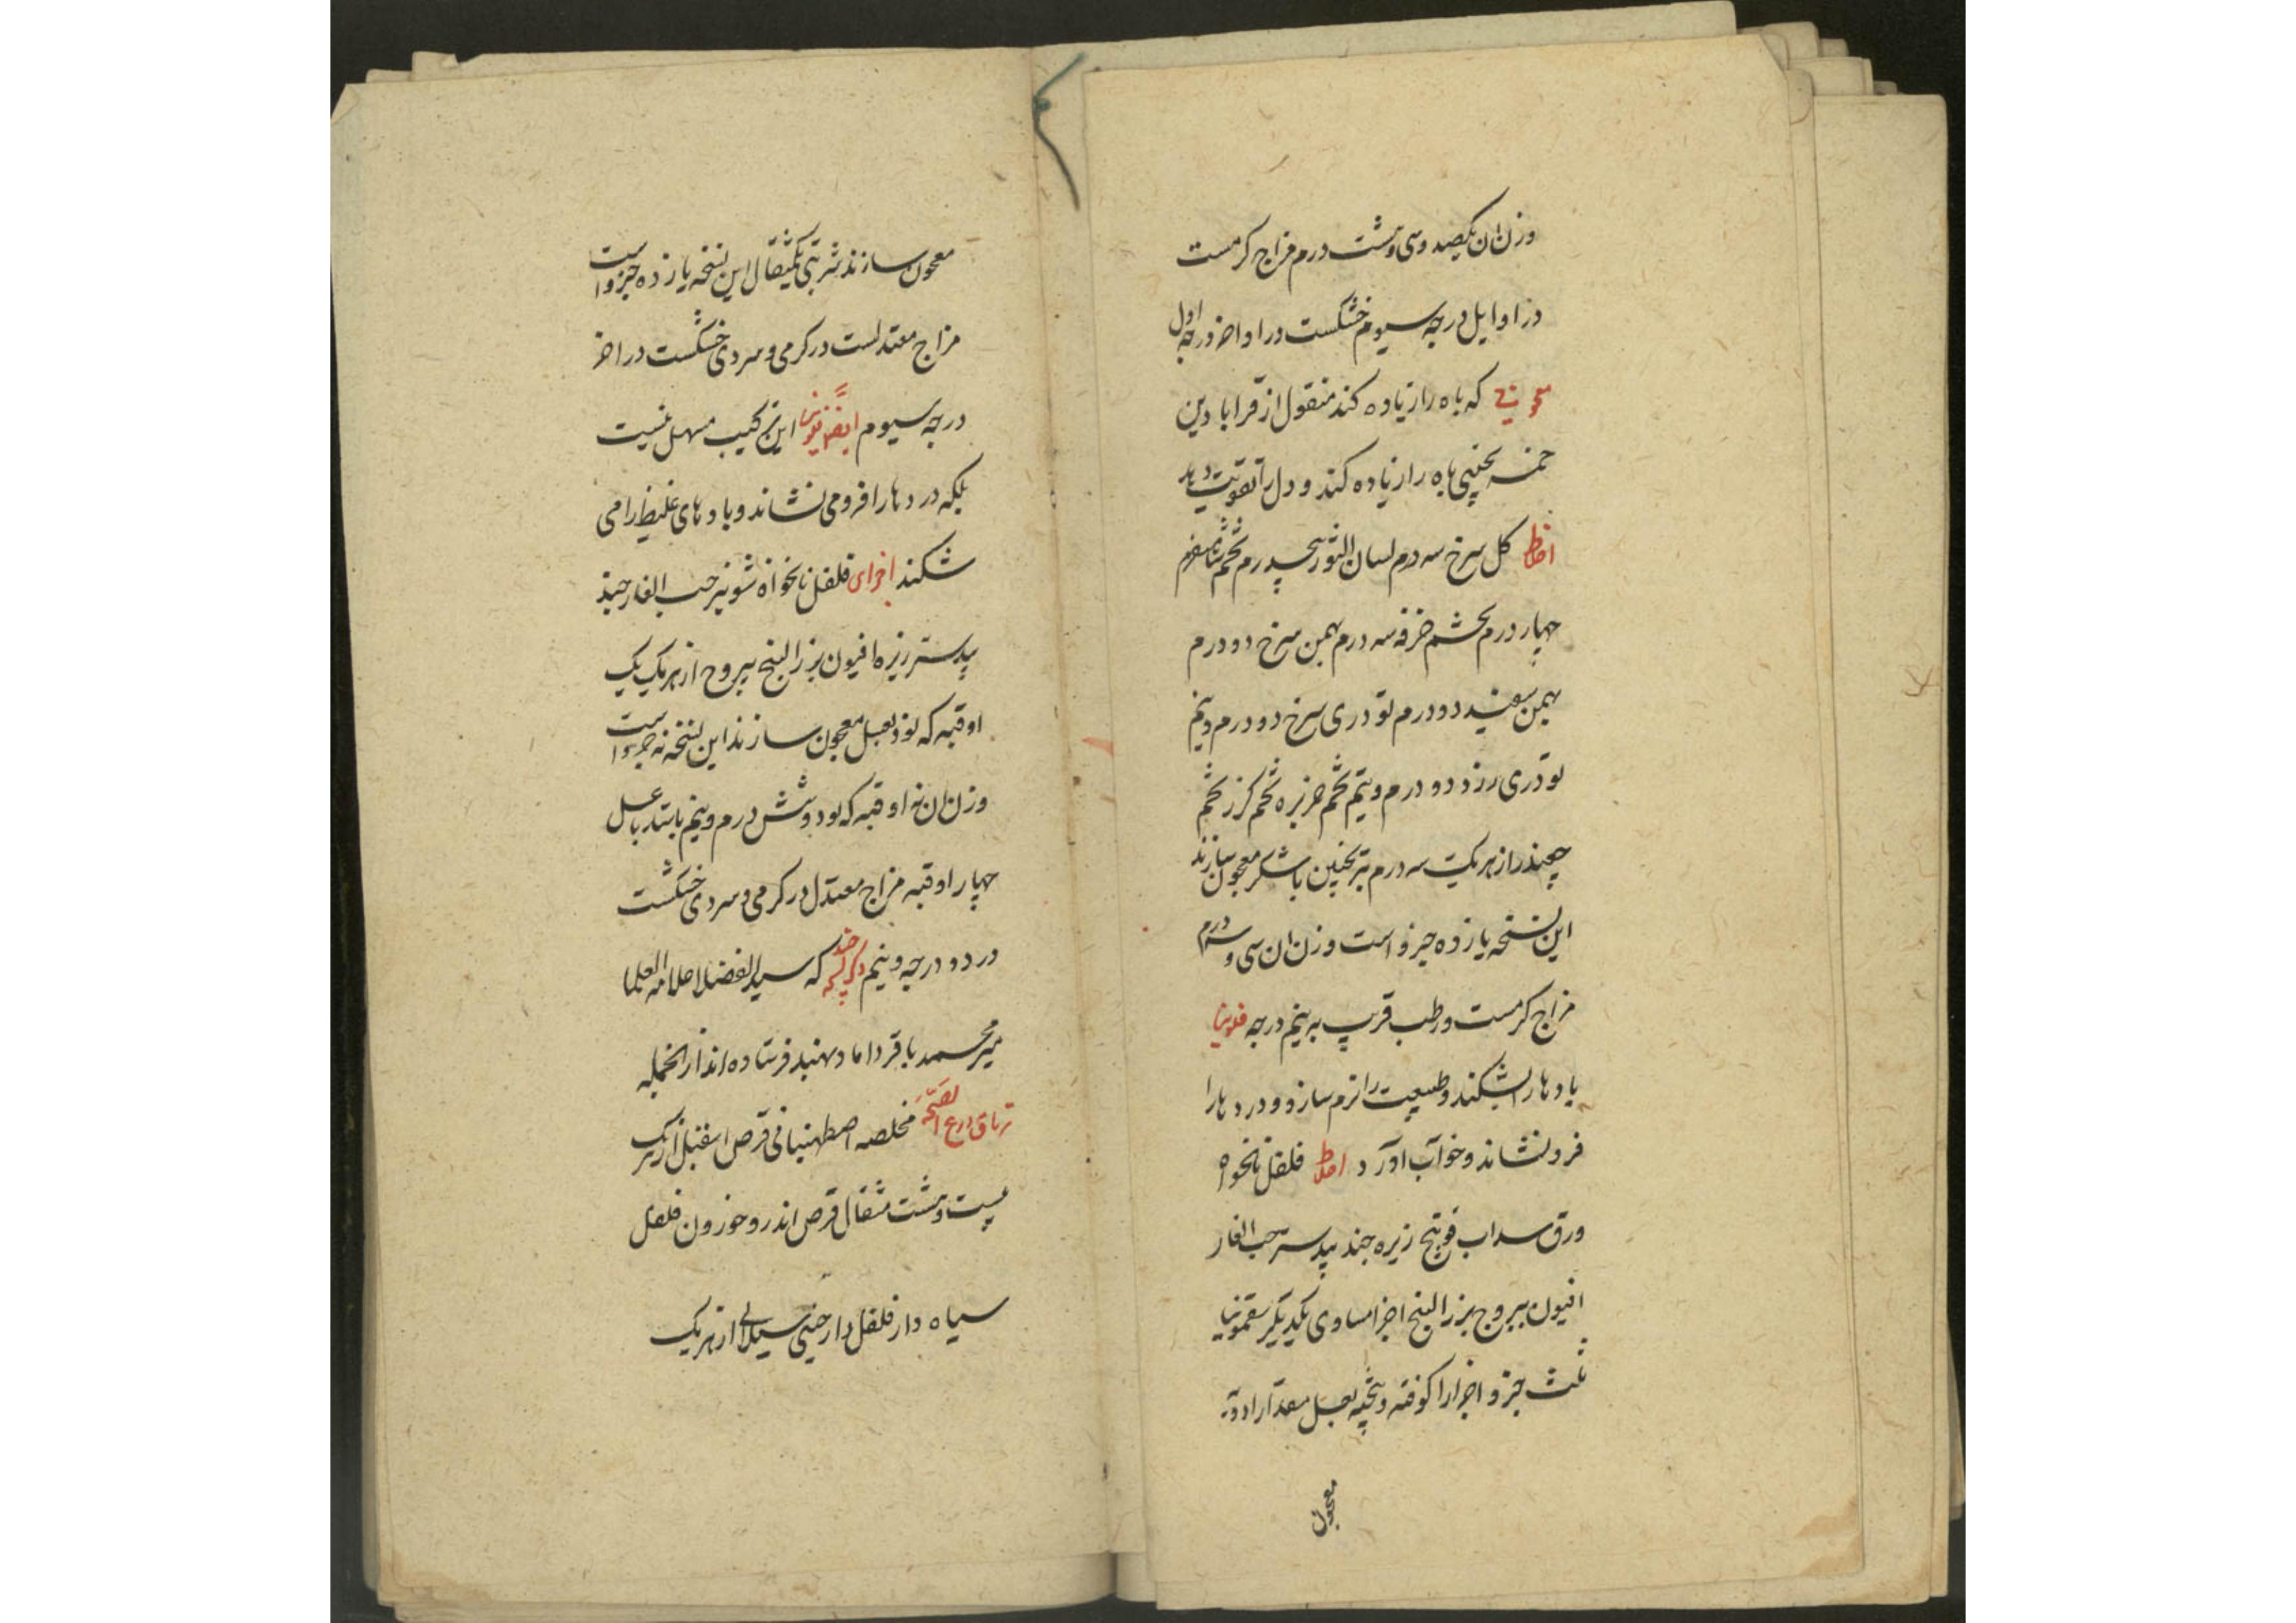 وزن ان یکصد و سی و هشت درم مزاج کرمست
در اوایل درجه سیوم خشکست در اواخر درجه اول
معجونی که باه را زیاده کند منقول از قرابادین
باه را زیاده کند و دل را تقویت دهد
اخلاط کل سرخ سه درم لسان الثور پنجدرم تخم شاهسفرم
چهار درم تخم خرفه سه درم بهمن سرخ دو درم
بهمن سفید دو درم تودری سرخ دو درم و نیم
تودری زرد دو درم و نیم تخم خربزه تخم کزر تخم
چغندر از هر یک سه درم ترنجبین با شکر معجون سازند
این نسخه یازده جزو است وزن ان سی و سه درم
مزاج کرمست و رطب قریب به نیم درجه فلونیا
بادها را بشکند و طبیعت را نرم سازد و دردها را
فرو نشاند و خواب آورد اخلاط فلفل نانخواه
ورق سداب فوتنج زیره جند بیدستر حب الغار
افیون یبروح بزر البنج اجزا مساوی یکدیکر سقمونیا
ثلث جزو اجزا را کوفته و بیخته بعسل مقدار ادویه
معجون
معجون سازند شربتی یکمثقال این نسخه یازده جزو است
مزاج معتدلست در کرمی و سردی خشکست در اخر
درجه سیوم ایضا فلونیا این ترکیب مسهل نیست
بلکه دردها را فرو می نشاند و بادهای غلیظ را می
شکند اجزای فلفل نانخواه شونیز حب الغار جند
بیدستر زیره افیون بزر البنج یبروح از هر یک یک
اوقیه که نود بعسل معجون سازند این نسخه نه جزو است
وزن ان نه اوقیه که نود و شش درم و نیم باشد با عسل
چهار اوقیه مزاج معتدل در کرمی و سردی خشکست
در دو درجه و نیم که سید الفضلا علامه العلما
میر محمد باقر داماد بهند فرستاده اند از انجمله
تریاق مخلصه اصطهنیانی قرص اسقیل از هر یک
بیست و هشت مثقال قرص اندروخورون فلفل
سیاه دار فلفل دارچینی سیلانی از هر یک